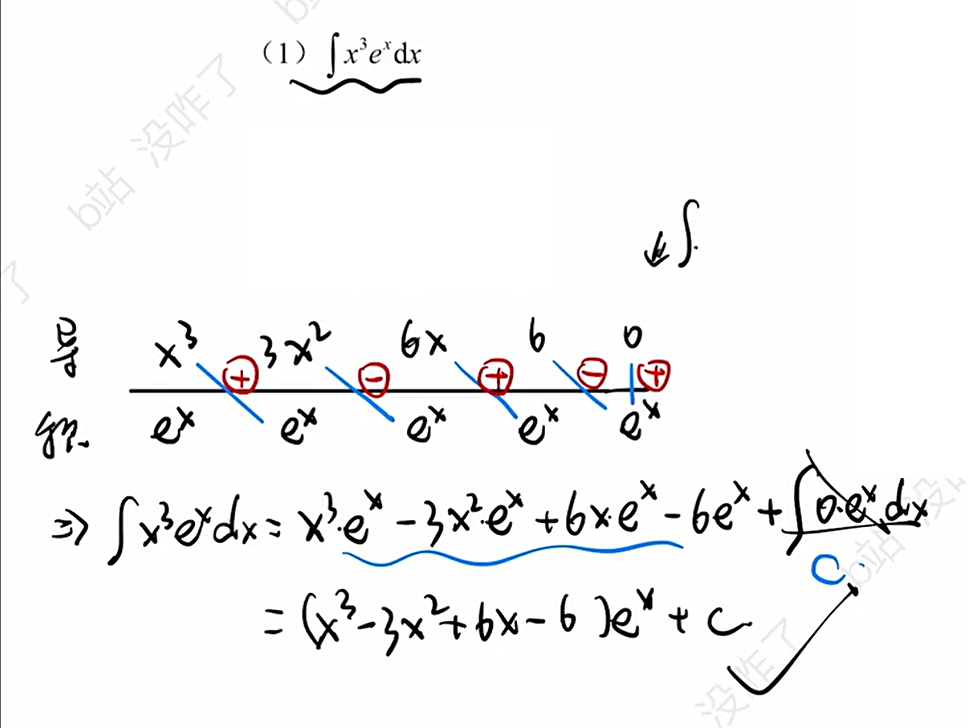 (1) ∫x³eˣdx
↙∫
导 x³ ⊕ 3x² ⊖ 6x ⊕ 6 ⊖ 0 ⊕
eˣ eˣ eˣ eˣ eˣ
⇒ ∫x³eˣdx = x³·eˣ - 3x²·eˣ + 6x·eˣ - 6eˣ + ∫0·eˣdx
C
= (x³ - 3x² + 6x - 6)eˣ + C
b站 没咋了
b站 没咋了
没咋了